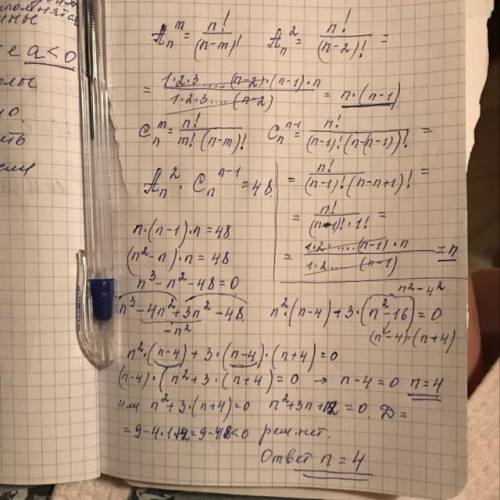 е a<0
A_n^m = n!/(n-m)!   A_n^2 = n!/(n-2)! =
= 1·2·3...(n-2)·(n-1)·n / 1·2·3...(n-2) = n·(n-1)
C_n^m = n!/m!(n-m)!   C_n^{n-1} = n!/(n-1)!(n-(n-1))! =
= n!/(n-1)!(n-n+1)! =
= n!/(n-1)!·1! =
= 1·2·...(n-1)·n / 1·2...(n-1) = n
A_n^2 · C_n^{n-1} = 48
n·(n-1)·n=48
(n²-n)·n=48
n³-n²-48=0
n³-4n²+3n²-48
-n²
n²-4².
n²·(n-4)+3·(n²-16)=0
(n-4)·(n+4)
n²·(n-4)+3·(n-4)·(n+4)=0
(n-4)·(n²+3·(n+4)=0 → n-4=0 n=4
или n²+3·(n+4)=0 n²+3n+12=0. D=
=9-4·1·12=9-48<0 реш.нет.
Ответ n=4